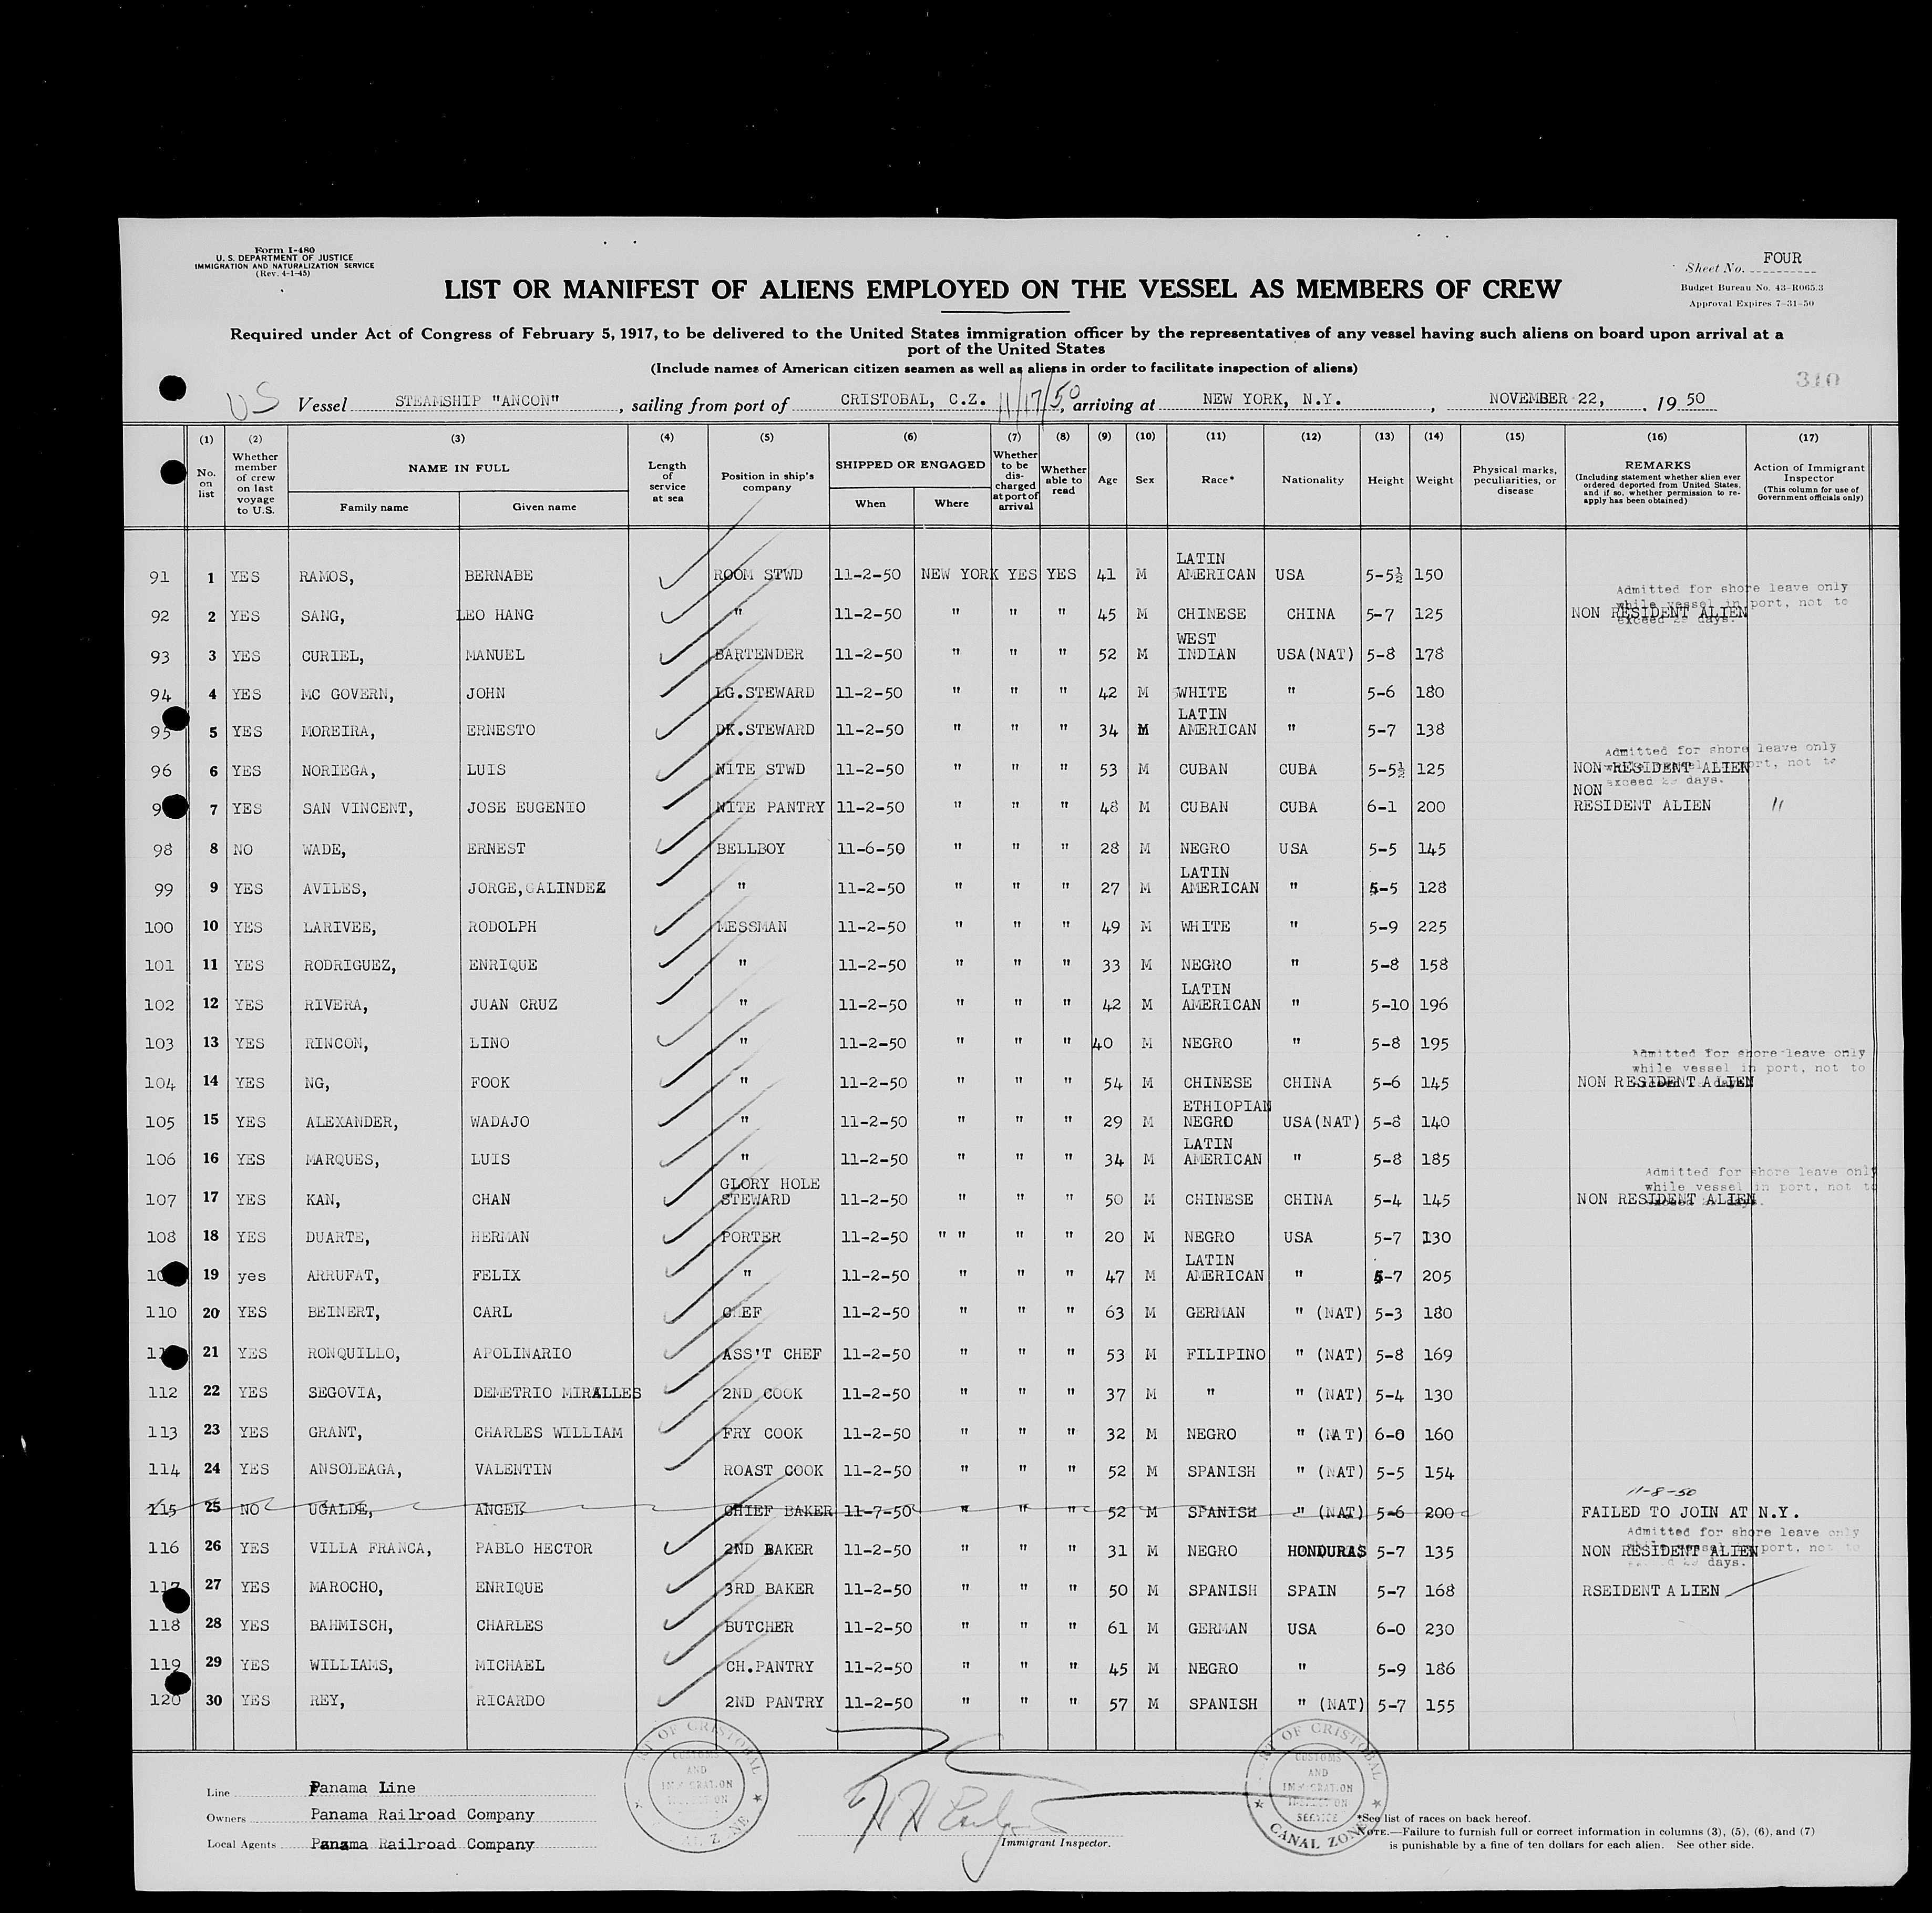 Form I-480
U. S. DEPARTMENT OF JUSTICE
IMMIGRATION AND NATURALIZATION SERVICE
(Rev. 4-1-45)
Sheet No. FOUR
Budget Bureau No. 43-R065.3
Approval Expires 7-31-50
LIST OR MANIFEST OF ALIENS EMPLOYED ON THE VESSEL AS MEMBERS OF CREW
Required under Act of Congress of February 5, 1917, to be delivered to the United States immigration officer by the representatives of any vessel having such aliens on board upon arrival at a
port of the United States
(Include names of American citizen seamen as well as aliens in order to facilitate inspection of aliens)
310
US Vessel STEAMSHIP "ANCON", sailing from port of CRISTOBAL, C.Z. 11/17/50, arriving at NEW YORK, N.Y., NOVEMBER 22, 19 50
(1) (2) (3) (4) (5) (6) (7) (8) (9) (10) (11) (12) (13) (14) (15) (16) (17)
No. on list
Whether member of crew on last voyage to U.S.
NAME IN FULL
Family name
Given name
Length of service at sea
Position in ship's company
SHIPPED OR ENGAGED
When
Where
Whether to be discharged at port of arrival
Whether able to read
Age
Sex
Race*
Nationality
Height
Weight
Physical marks, peculiarities, or disease
REMARKS
(Including statement whether alien ever ordered deported from United States, and if so, whether permission to reapply has been obtained)
Action of Immigrant Inspector
(This column for use of Government officials only)
91 1 YES RAMOS, BERNABE ROOM STWD 11-2-50 NEW YORK YES YES 41 M LATIN AMERICAN USA 5-5½ 150
92 2 YES SANG, LEO HANG " 11-2-50 " " " 45 M CHINESE CHINA 5-7 125 NON RESIDENT ALIEN Admitted for shore leave only while vessel in port, not to exceed 29 days.
93 3 YES CURIEL, MANUEL BARTENDER 11-2-50 " " " 52 M WEST INDIAN USA(NAT) 5-8 178
94 4 YES MC GOVERN, JOHN LG.STEWARD 11-2-50 " " " 42 M WHITE " 5-6 180
95 5 YES MOREIRA, ERNESTO DK.STEWARD 11-2-50 " " " 34 M LATIN AMERICAN " 5-7 138
96 6 YES NORIEGA, LUIS NITE STWD 11-2-50 " " " 53 M CUBAN CUBA 5-5½ 125 NON-RESIDENT ALIEN Admitted for shore leave only while vessel in port, not to exceed 29 days.
9 7 YES SAN VINCENT, JOSE EUGENIO NITE PANTRY 11-2-50 " " " 48 M CUBAN CUBA 6-1 200 NON RESIDENT ALIEN "
98 8 NO WADE, ERNEST BELLBOY 11-6-50 " " " 28 M NEGRO USA 5-5 145
99 9 YES AVILES, JORGE,GALINDEZ " 11-2-50 " " " 27 M LATIN AMERICAN " 5-5 128
100 10 YES LARIVEE, RODOLPH MESSMAN 11-2-50 " " " 49 M WHITE " 5-9 225
101 11 YES RODRIGUEZ, ENRIQUE " 11-2-50 " " " 33 M NEGRO " 5-8 158
102 12 YES RIVERA, JUAN CRUZ " 11-2-50 " " " 42 M LATIN AMERICAN " 5-10 196
103 13 YES RINCON, LINO " 11-2-50 " " " 40 M NEGRO " 5-8 195
104 14 YES NG, FOOK " 11-2-50 " " " 54 M CHINESE CHINA 5-6 145 NON RESIDENT ALIEN Admitted for shore leave only while vessel in port, not to days
105 15 YES ALEXANDER, WADAJO " 11-2-50 " " " 29 M ETHIOPIAN NEGRO USA(NAT) 5-8 140
106 16 YES MARQUES, LUIS " 11-2-50 " " " 34 M LATIN AMERICAN " 5-8 185
107 17 YES KAN, CHAN GLORY HOLE STEWARD 11-2-50 " " " 50 M CHINESE CHINA 5-4 145 NON RESIDENT ALIEN Admitted for shore leave only while vessel in port, not to days.
108 18 YES DUARTE, HERMAN PORTER 11-2-50 " " " " 20 M NEGRO USA 5-7 130
10 19 yes ARRUFAT, FELIX " 11-2-50 " " " 47 M LATIN AMERICAN " 5-7 205
110 20 YES BEINERT, CARL CHEF 11-2-50 " " " 63 M GERMAN " (NAT) 5-3 180
11 21 YES RONQUILLO, APOLINARIO ASS'T CHEF 11-2-50 " " " 53 M FILIPINO " (NAT) 5-8 169
112 22 YES SEGOVIA, DEMETRIO MIRALLES 2ND COOK 11-2-50 " " " 37 M " " (NAT) 5-4 130
113 23 YES GRANT, CHARLES WILLIAM FRY COOK 11-2-50 " " " 32 M NEGRO " (NAT) 6-0 160
114 24 YES ANSOLEAGA, VALENTIN ROAST COOK 11-2-50 " " " 52 M SPANISH " (NAT) 5-5 154
115 25 NO UGALDE, ANGEL CHIEF BAKER 11-7-50 " " " 52 M SPANISH " (NAT) 5-6 200 11-8-50 FAILED TO JOIN AT N.Y.
116 26 YES VILLA FRANCA, PABLO HECTOR 2ND BAKER 11-2-50 " " " 31 M NEGRO HONDURAS 5-7 135 NON RESIDENT ALIEN Admitted for shore leave only while vessel in port, not to exceed 29 days.
117 27 YES MAROCHO, ENRIQUE 3RD BAKER 11-2-50 " " " 50 M SPANISH SPAIN 5-7 168 RSEIDENT ALIEN
118 28 YES BAHMISCH, CHARLES BUTCHER 11-2-50 " " " 61 M GERMAN USA 6-0 230
119 29 YES WILLIAMS, MICHAEL CH.PANTRY 11-2-50 " " " 45 M NEGRO " 5-9 186
120 30 YES REY, RICARDO 2ND PANTRY 11-2-50 " " " 57 M SPANISH " (NAT) 5-7 155
Line Panama Line
Owners Panama Railroad Company
Local Agents Panama Railroad Company
PORT OF CRISTOBAL
CUSTOMS AND IMMIGRATION INSPECTION
CANAL ZONE
Immigrant Inspector.
PORT OF CRISTOBAL
CUSTOMS AND IMMIGRATION INSPECTION SERVICE
CANAL ZONE
*See list of races on back hereof.
NOTE.—Failure to furnish full or correct information in columns (3), (5), (6), and (7)
is punishable by a fine of ten dollars for each alien. See other side.